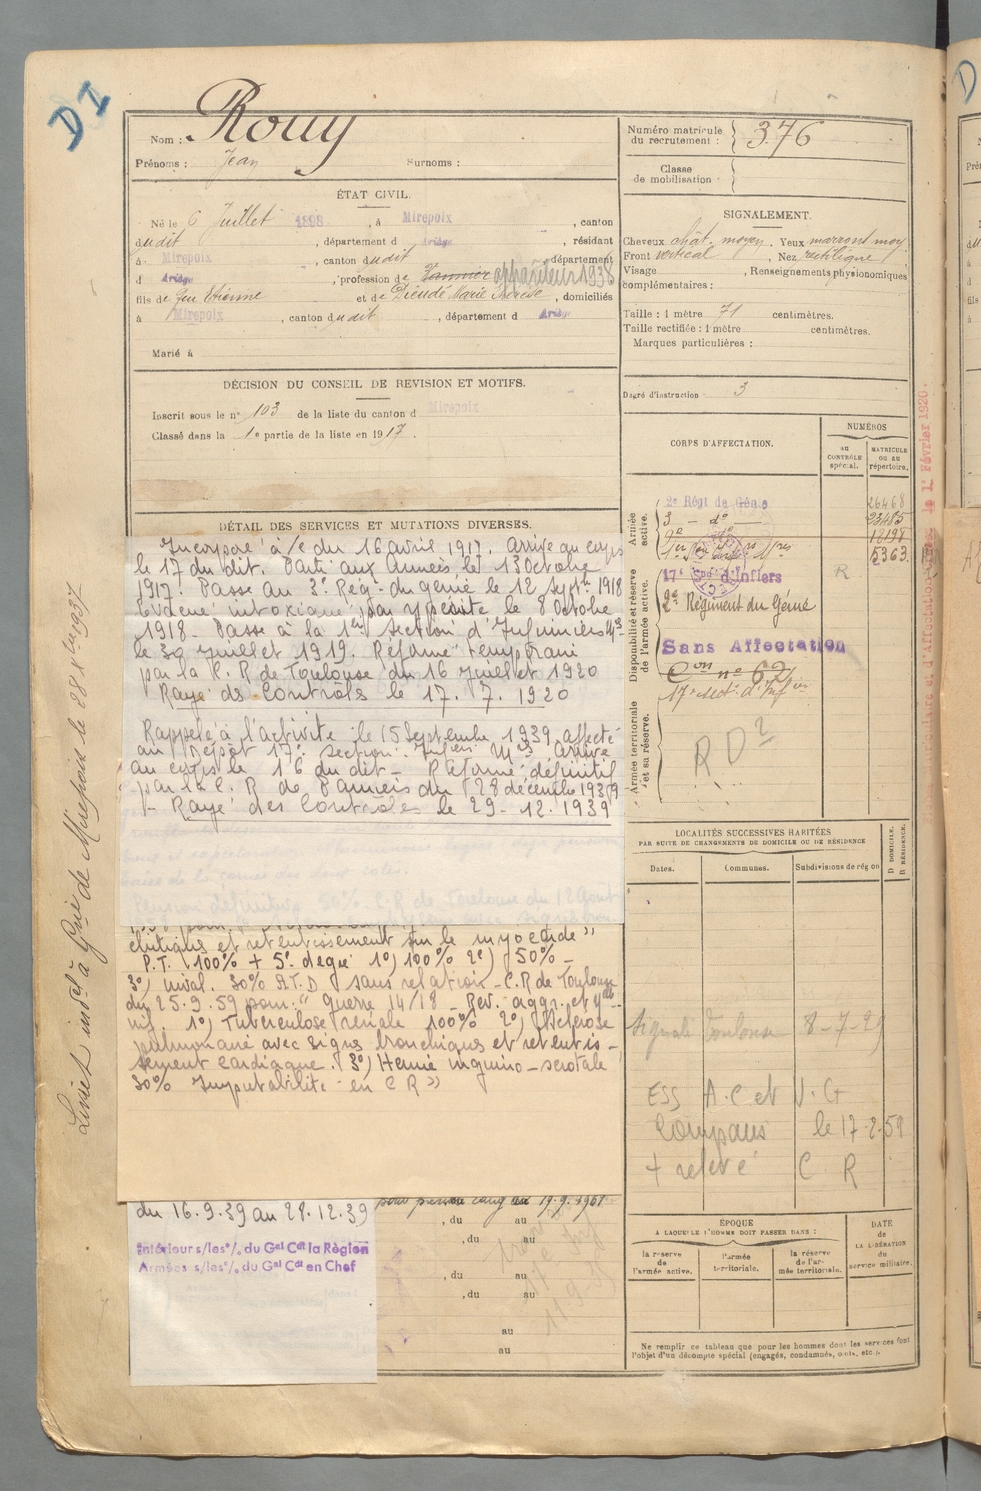 DI
Nom : Rouy
Prénoms : Jean Surnoms :
ÉTAT CIVIL.
Né le 6 Juillet 1898, à Mirepoix, canton
dudit, département d Ariège, résidant
à Mirepoix, canton dudit, département
d Ariège, profession de appariteur 1938
fils de feu Etienne et de Dieudé Marie Thérèse, domiciliés
à Mirepoix, canton dudit, département d Ariège
Marié à
DÉCISION DU CONSEIL DE REVISION ET MOTIFS.
Inscrit sous le n° 103 de la liste du canton d Mirepoix
Classé dans la 1e partie de la liste en 1917.
DÉTAIL DES SERVICES ET MUTATIONS DIVERSES.
Incorporé à/c du 16 avril 1917. Arrivé au corps
le 17 du dit. Parti aux Armées le 13 Octobre
1917. Passé au 3e Rég. du génie le 12 Sept. 1918
Evacué intoxiqué par ypérite le 8 Octobre
1918 - Passé à la 1re section d'Infirmiers
le 30 Juillet 1919. Réformé temporaire
par la C. R de Toulouse du 16 Juillet 1920
Rayé des Controls le 17. 7. 1920
Rappelé à l'activité le 15 Septembre 1939, affecté
au Dépôt 17e section Arrivé
au corps le 16 du dit - Réformé définitif
par la C. R de Pamiers du 28 décembre 1939
- Rayé des Controles le 29-12.1939
Pension définitive 50% C.R de Toulouse du 12 Août
chitiques et retentissement sur le myocarde"
P.T. 100% + 5e degré 1°) 100% 2°) 50% -
3°) inval. 30% A.T.D sans relation - C.R de Toulouse
du 25.9.59 pour: "guerre 14/18 - Rev. aggr. et
inf. 1°) Tuberculose rénale 100% 2°) Sclérose
pulmonaire avec signes bronchiques et retentis-
sement cardiaque. 3°) Hernie inguino-scrotale
30% Imputabilité en C R"
du 16.9.39 au 28.12.39
Intérieur s/les °/. du Gal Cdt la Région
Armées s/les °/. du Gal Cdt en Chef
, du au
, du au
, du au
, du au
au
au
Numéro matricule du recrutement : 376
Classe de mobilisation
SIGNALEMENT.
Cheveux chât. moyen. Yeux marrons moy
Front vertical, Nez rectiligne
Visage , Renseignements physionomiques
complémentaires :
Taille : 1 mètre 71 centimètres.
Taille rectifiée : 1 mètre centimètres.
Marques particulières :
Degré d'instruction 3
CORPS D'AFFECTATION.
NUMÉROS
AU CONTRÔLE spécial.
MATRICULE OU AU répertoire.
Armée active.
2e Régt de Génie 26468
3 - d° - 23485
5363
Disponibilité et réserve de l'armée active.
17e Son d'Infiers R
2e Régiment du Génie
Sans Affectation
17e sect. d'Infies
Armée territoriale et sa réserve.
R D2
LOCALITÉS SUCCESSIVES HABITÉES
PAR SUITE DE CHANGEMENTS DE DOMICILE OU DE RÉSIDENCE
Dates. Communes. Subdivisions de région D DOMICILE. R RÉSIDENCE.
Signalé Toulouse 8-7-29
ESS A.C et V.G
le 17-2-59
+ relevé C R
ÉPOQUE
A LAQUELLE L'HOMME DOIT PASSER DANS :
la réserve de l'armée active.
l'armée territoriale.
la réserve de l'armée territoriale.
DATE de LA LIBÉRATION du service militaire.
Ne remplir ce tableau que pour les hommes dont les services font
l'objet d'un décompte spécial (engagés, condamnés, omis, etc.).
1er Février 1920.